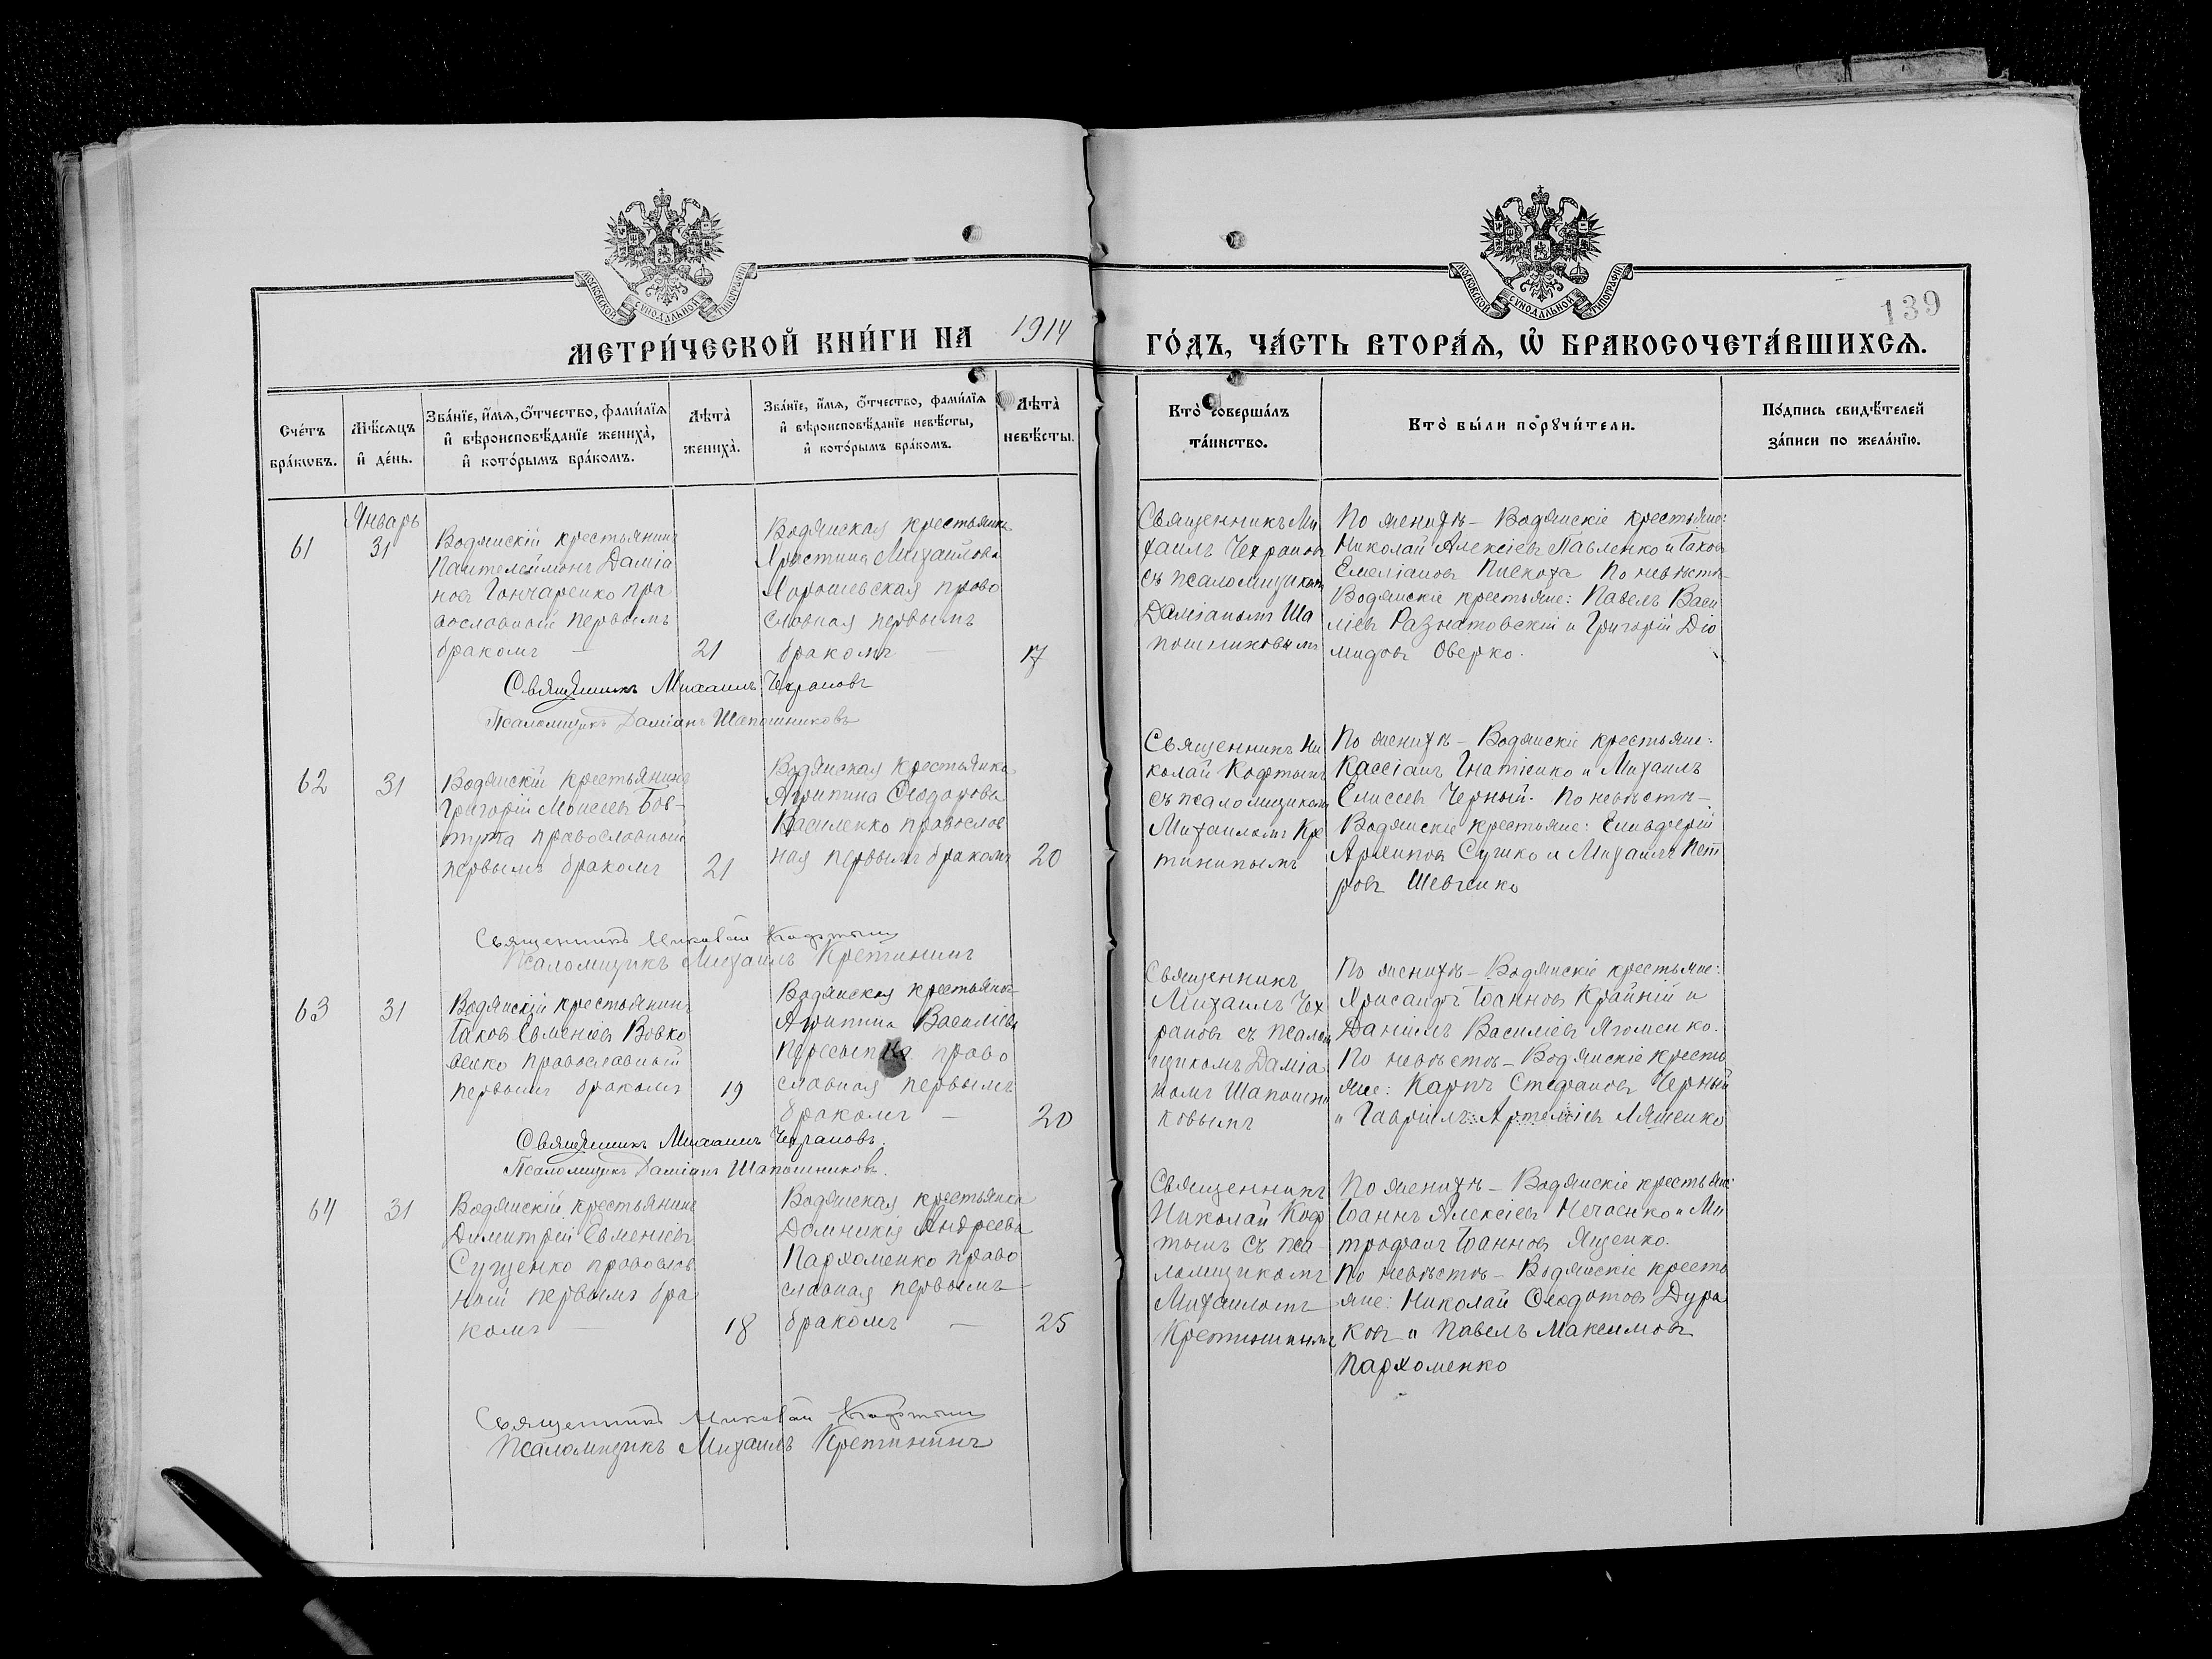 139
МЕТРИ́ЧЕСКОЙ КНИ́ГИ НА 1914 ГО́ДЪ, ЧА́СТЬ ВТОРА́Я, Ѿ БРАКОСОЧЕТА́ВШИХСЯ.
МОСКОВСКОЙ СѴНОДАЛЬНОЙ ТИПОГРАФІИ
МОСКОВСКОЙ СѴНОДАЛЬНОЙ ТИПОГРАФІИ
Сче́тъ
бра́кѡвъ.
Мѣ́сяцъ
и҆ де́нь.
Зва́нїе, и҆́мѧ, ѻ҆́тчество, фами́лїѧ
и҆ вѣроисповѣ́данїе жениха̀,
и҆ кото́рымъ бра́комъ.
Лѣ́та̀
жениха̀.
Зва́нїе, и҆́мѧ, ѻ҆́тчество, фами́лїѧ
и҆ вѣроисповѣ́данїе невѣ́сты,
и҆ кото́рымъ бра́комъ.
Лѣ́та̀
невѣ́сты.
Кто̀ соверша́лъ
та́инство.
Кто̀ бы́ли порꙋчи́тели.
По́дпись свидѣ́телей
за́писи по жела́нїю.
Январь
61
31
Водянскій крестьянинъ
Пантелеймонъ Даміа
новъ Гончаренко пра
вославный первымъ
бракомъ —
21
Водянская крестьянка
Христина Михайлова
Хорошевская право
славная первымъ
бракомъ —
17
Священникъ Ми
хаилъ Чехрановъ
съ псаломщикомъ
Даміаномъ Ша
пошниковымъ
По женихѣ – Водянскіе крестьяне:
Николай Алексіевъ Павленко и Іаковъ
Емеліановъ Пискоха По невѣстѣ –
Водянскіе крестьяне: Павелъ Васи
ліевъ Разнатовскій и Григорій Діо
мидовъ Оверко.
Священникъ Михаилъ Чехрановъ
Псаломщикъ Даміанъ Шапошниковъ
62
31
Водянскій крестьянинъ
Григорій Моисеевъ Бов-
тута православный
первымъ бракомъ
21
Водянская крестьянка
Агрипина Ѳеодорова
Василенко православ
ная первымъ бракомъ
20
Священникъ Ни
колай Кофтынъ
съ псаломщикомъ
Михаиломъ Кре
тининымъ
По женихѣ – Водянскіе крестьяне:
Кассіанъ Игнатіенко и Михаилъ
Елисеевъ Черный. По невѣстѣ –
Водянскіе крестьяне: Елевферій
Архиповъ Сушко и Михаилъ Пет
ровъ Шевченко
Священникъ Николай Кофтынъ
Псаломщикъ Михаилъ Кретининъ
63
31
Водянскій крестьянинъ
Іаковъ Евменіевъ Вовко
венко православный
первымъ бракомъ
19
Водянская крестьянка
Агрипина Васильева
право
славная первымъ
бракомъ —
20
Священникъ
Михаилъ Чех
рановъ съ псалом
щикомъ Даміа
номъ Шапошни
ковымъ
По женихѣ – Водянскіе крестьяне:
Хрисанфъ Іоанновъ Крайній и
Даніилъ Василіевъ Яхменко.
По невѣстѣ – Водянскіе кресть
яне: Карпъ Стефановъ Черный
и Гавріилъ Артеміевъ Ляшенко
Священникъ Михаилъ Чехрановъ.
Псаломщикъ Даміанъ Шапошниковъ.
64
31
Водянскій крестьянинъ
Димитрій Евменіевъ
Сущенко православ
ный первымъ бра
комъ —
18
Водянская крестьянка
Домникія Андреева
Пархоменко право
славная первымъ
бракомъ —
25
Священникъ
Николай Коф
тынъ съ пса
ломщикомъ
Михаиломъ
Кретининымъ
По женихѣ – Водянскіе крестьяне:
Іоаннъ Алексіевъ Нечаенко и Ми
трофанъ Іоанновъ Яценко.
По невѣстѣ – Водянскіе кресть
яне: Николай Ѳеодотовъ Дура
ковъ и Павелъ Максимовъ
Пархоменко
Священникъ Николай Кофтынъ
Псаломщикъ Михаилъ Кретининъ